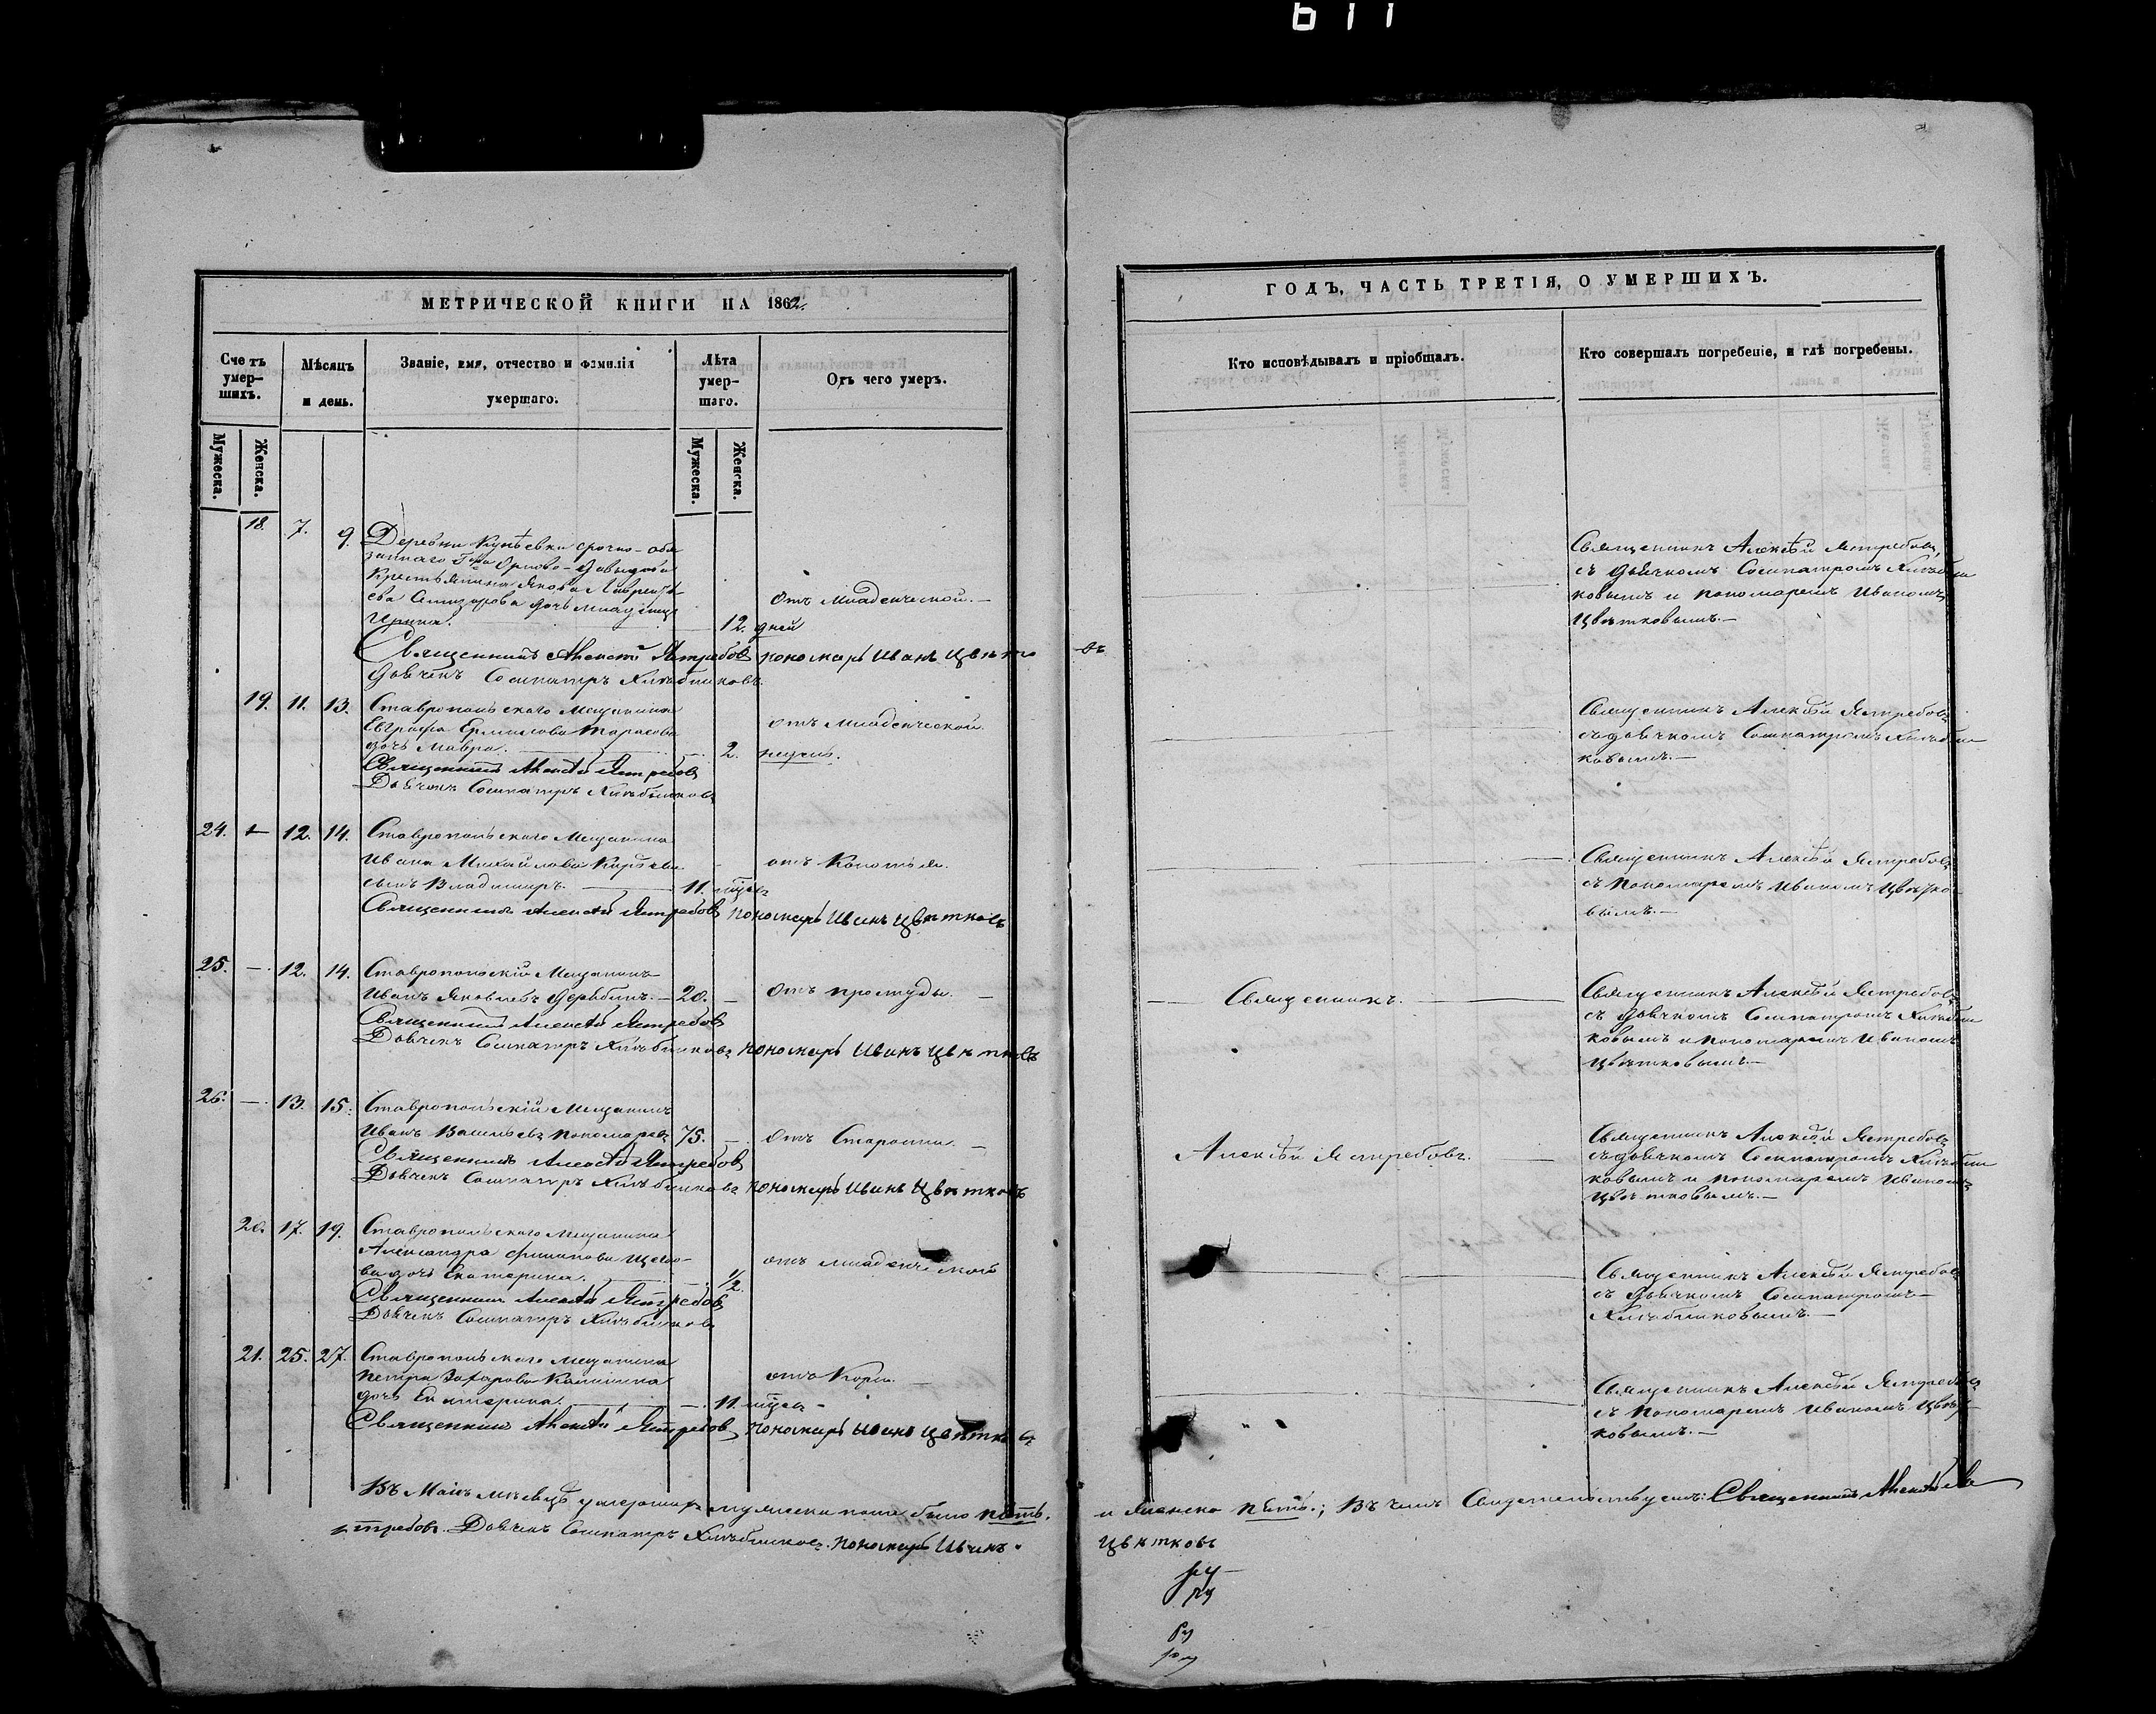 611
МЕТРИЧЕСКОЙ КНИГИ НА 1862.
Счетъ умер-
шихъ.
Мѣсяцъ
и день.
Званіе, имя, отчество и фамилія
умершаго.
Лѣта
умер-
шаго.
Отъ чего умеръ.
Мужеска.
Женска.
Мужеска.
Женска.
18. 7. 9. Деревни Кунѣевки срочно-обя
заннаго Гра Орлова-Давыдова
Крестьянина Якова Лаврентѣ-
ева дочь младеница
Ирина. 12. дней
отъ Младенческой.
Священникъ Алексѣй Ястребовъ пономарь Иванъ Цвѣтко
въ
Дьячекъ Сосипатръ Хлѣбниковъ.
19. 11. 13. Ставропольскаго Мещанина
Евграфа Ермилова Тарасова
дочь Мавра. 2. недѣли.
отъ младенческой.
Священникъ Алексѣй Ястребовъ
Дьячекъ Сосипатръ Хлѣбниковъ
24. 12. 14. Ставропольскаго Мещанина
Ивана Михайлова
сынъ Владимиръ. 11. мцевъ
отъ Колотья.
Священникъ Алексѣй Ястребовъ пономарь Иванъ Цвѣтковъ
25. — 12. 14. Ставропольскій Мещанинъ
Иванъ Яковлевъ Дерябинъ. — 20. —
отъ простуды. —
Священникъ Алексѣй Ястребовъ
Дьячекъ Сосипатръ Хлѣбниковъ пономарь Иванъ Цвѣтковъ
26. — 13. 15. Ставропольскій Мещанинъ
Иванъ Васильевъ Пономаревъ 75. —
отъ Старости. —
Священникъ Алексѣй Ястребовъ
Дьячекъ Сосипатръ Хлѣбниковъ пономарь Иванъ Цвѣтковъ
20. 17. 19. Ставропольскаго Мещанина
Александра Филипова
дочь Екатерина. 1/2.
отъ младенческой
Священникъ Алексѣй Ястребовъ
Дьячекъ Сосипатръ Хлѣбниковъ
21. 25. 27. Ставропольскаго Мещанина
Петра Захарова Калинина
дочь Екатерина. — 11. мцевъ
отъ Кори. —
Священникъ Алексѣй Ястребовъ пономарь Иванъ Цвѣтковъ
Въ Маіѣ мѣсяцѣ умершихъ мужеска пола было пять.
Ястребовъ. Дьячекъ Сосипатръ Хлѣбниковъ. пономарь Иванъ
ГОДЪ, ЧАСТЬ ТРЕТІЯ, О УМЕРШИХЪ.
Кто исповѣдывалъ и пріобщалъ.
Кто совершалъ погребеніе, и гдѣ погребены.
Священникъ Алексѣй Ястребовъ,
съ дьячкомъ Сосипатромъ Хлѣбни
ковымъ и пономаремъ Иваномъ
Цвѣтковымъ.—
Священникъ Алексѣй Ястребовъ
съ дьячкомъ Сосипатромъ Хлѣбни
ковымъ.—
Священникъ Алексѣй Ястребовъ
съ Пономаремъ Иваномъ Цвѣтко-
вымъ.—
Священникъ.
Священникъ Алексѣй Ястребовъ
съ дьячкомъ Сосипатромъ Хлѣбни
ковымъ и пономаремъ Иваномъ
Цвѣтковымъ.—
Алексѣй Ястребовъ.
Священникъ Алексѣй Ястребовъ
съ дьячкомъ Сосипатромъ Хлѣбни
ковымъ и пономаремъ Иваномъ
Цвѣтковымъ.—
Священникъ Алексѣй Ястребовъ
съ дьячкомъ Сосипатромъ
Хлѣбниковымъ.—
Священникъ Алексѣй Ястребовъ
съ Пономаремъ Иваномъ Цвѣт-
ковымъ.—
и женска пять.; Въ чемъ Свидетельствуемъ: Священникъ Алексѣй
Цвѣтковъ